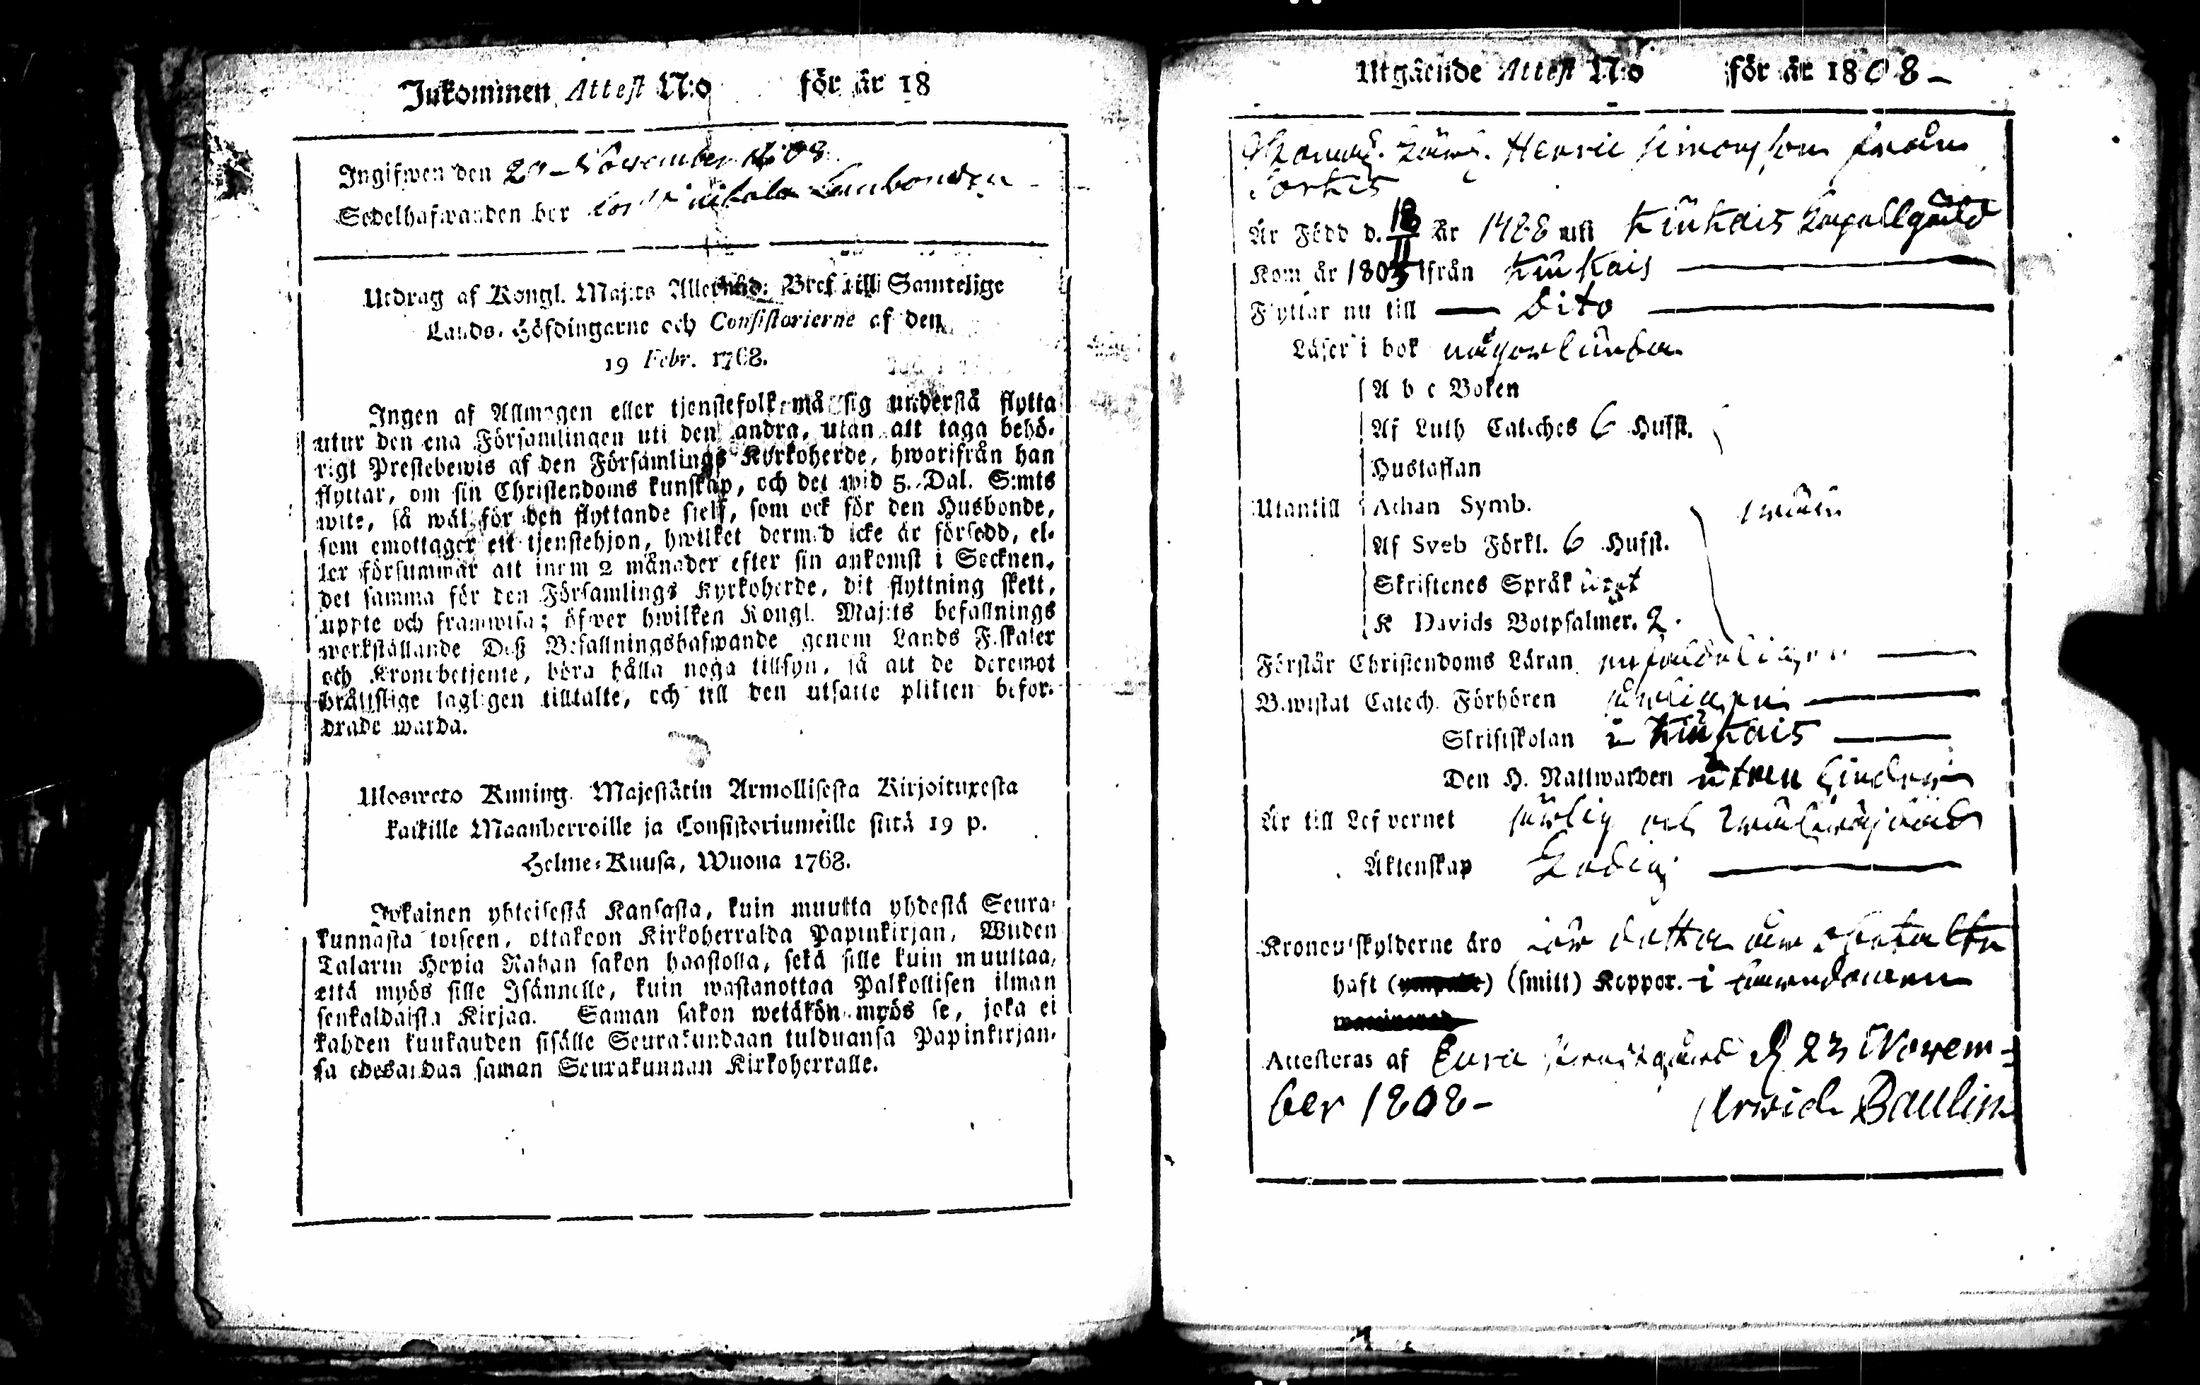 Inkommen Attest N:o för år 18
Ingifwen den 29 November 1808
Sedelhafwanden bor hos
Utdrag af Kongl. Maj:ts Allernåd: Bref till Samtelige
Lands-Höfdingarne och Consistorierne af den
19 Febr. 1768.
Ingen af Allmogen eller tjenstefolk må sig understå flytta
utur den ena Församlingen uti den andra, utan att taga behö-
rigt Prestebewis af den Församlings Kyrkoherde, hwarifrån han
flyttar, om sin Christendoms kunskap, och det wid 5. Dal. S:mts
wite, så wäl för den flyttande sielf, som ock för den Husbonde,
som emottager ett tjenstehjon, hwilket dermed icke är försedd, el-
ler försummar att inom 2 månader efter sin ankomst i Socknen,
det samma för den Församlings Kyrkoherde, dit flyttning skett,
uppte och framwisa; öfwer hwilken Kongl. Maj:ts befallnings
werkställande Deß Befallningshafwande genom Lands F.skaler
och Kronobetjente, böra hålla noga tillsyn, så att de deremot
bråttslige lagligen tilltalte, och till den utsatte plikten befor-
drade warda.
Ulosweto Kuning. Majestätin Armollisesta Kirjoituxesta
kaikille Maanherroille ja Consistoriumeille siitä 19 p.
Helme-Kuusa, Wuona 1768.
Jokainen yhteisestä Kansasta, kuin muutta yhdestä Seura-
kunnasta toiseen, ottakoon Kirkoherralda Papinkirjan, Wiiden
Talarin Hopia Rahan sakon haastolla, sekä sille kuin muuttaa,
että myös sille Isännelle, kuin wastanottaa Palkollisen ilman
senkaldaista Kirjaa. Saman sakon wetäkön myös se, joka ei
kahden kuukauden sisälle Seurakundaan tulduansa Papinkirjan-
sa edesandaa saman Seurakunnan Kirkoherralle.
Utgående Attest N:o för år 1808 –
Henric Simonsson från
Sorkis
Är Född d. 18/11 År 1788 uti Kiukais Capellgäld
Kom år 1805 ifrån Kiukais
Flyttar nu till — Dito
Läser i bok någorlunda
A b c Boken
Af Luth Cateches 6 Hufst.
Hustaflan
Utantill Athan Symb.
Af Sveb Förkl. 6 Hufst.
Skriftenes Språk
K Davids Botpsalmer. 2.
Förstår Christendoms Läran
Bewistat Catech. Förhören
Skriftskolan i Kiukais
Den H. Nattwarden
Är till Lefvernet
Äktenskap Ledig
Kronoutskylderne äro för detta år
haft () (smitt) Koppor. i barndomen
Attesteras af Eura d 23 Novem-
ber 1808 – Arwid Paulin